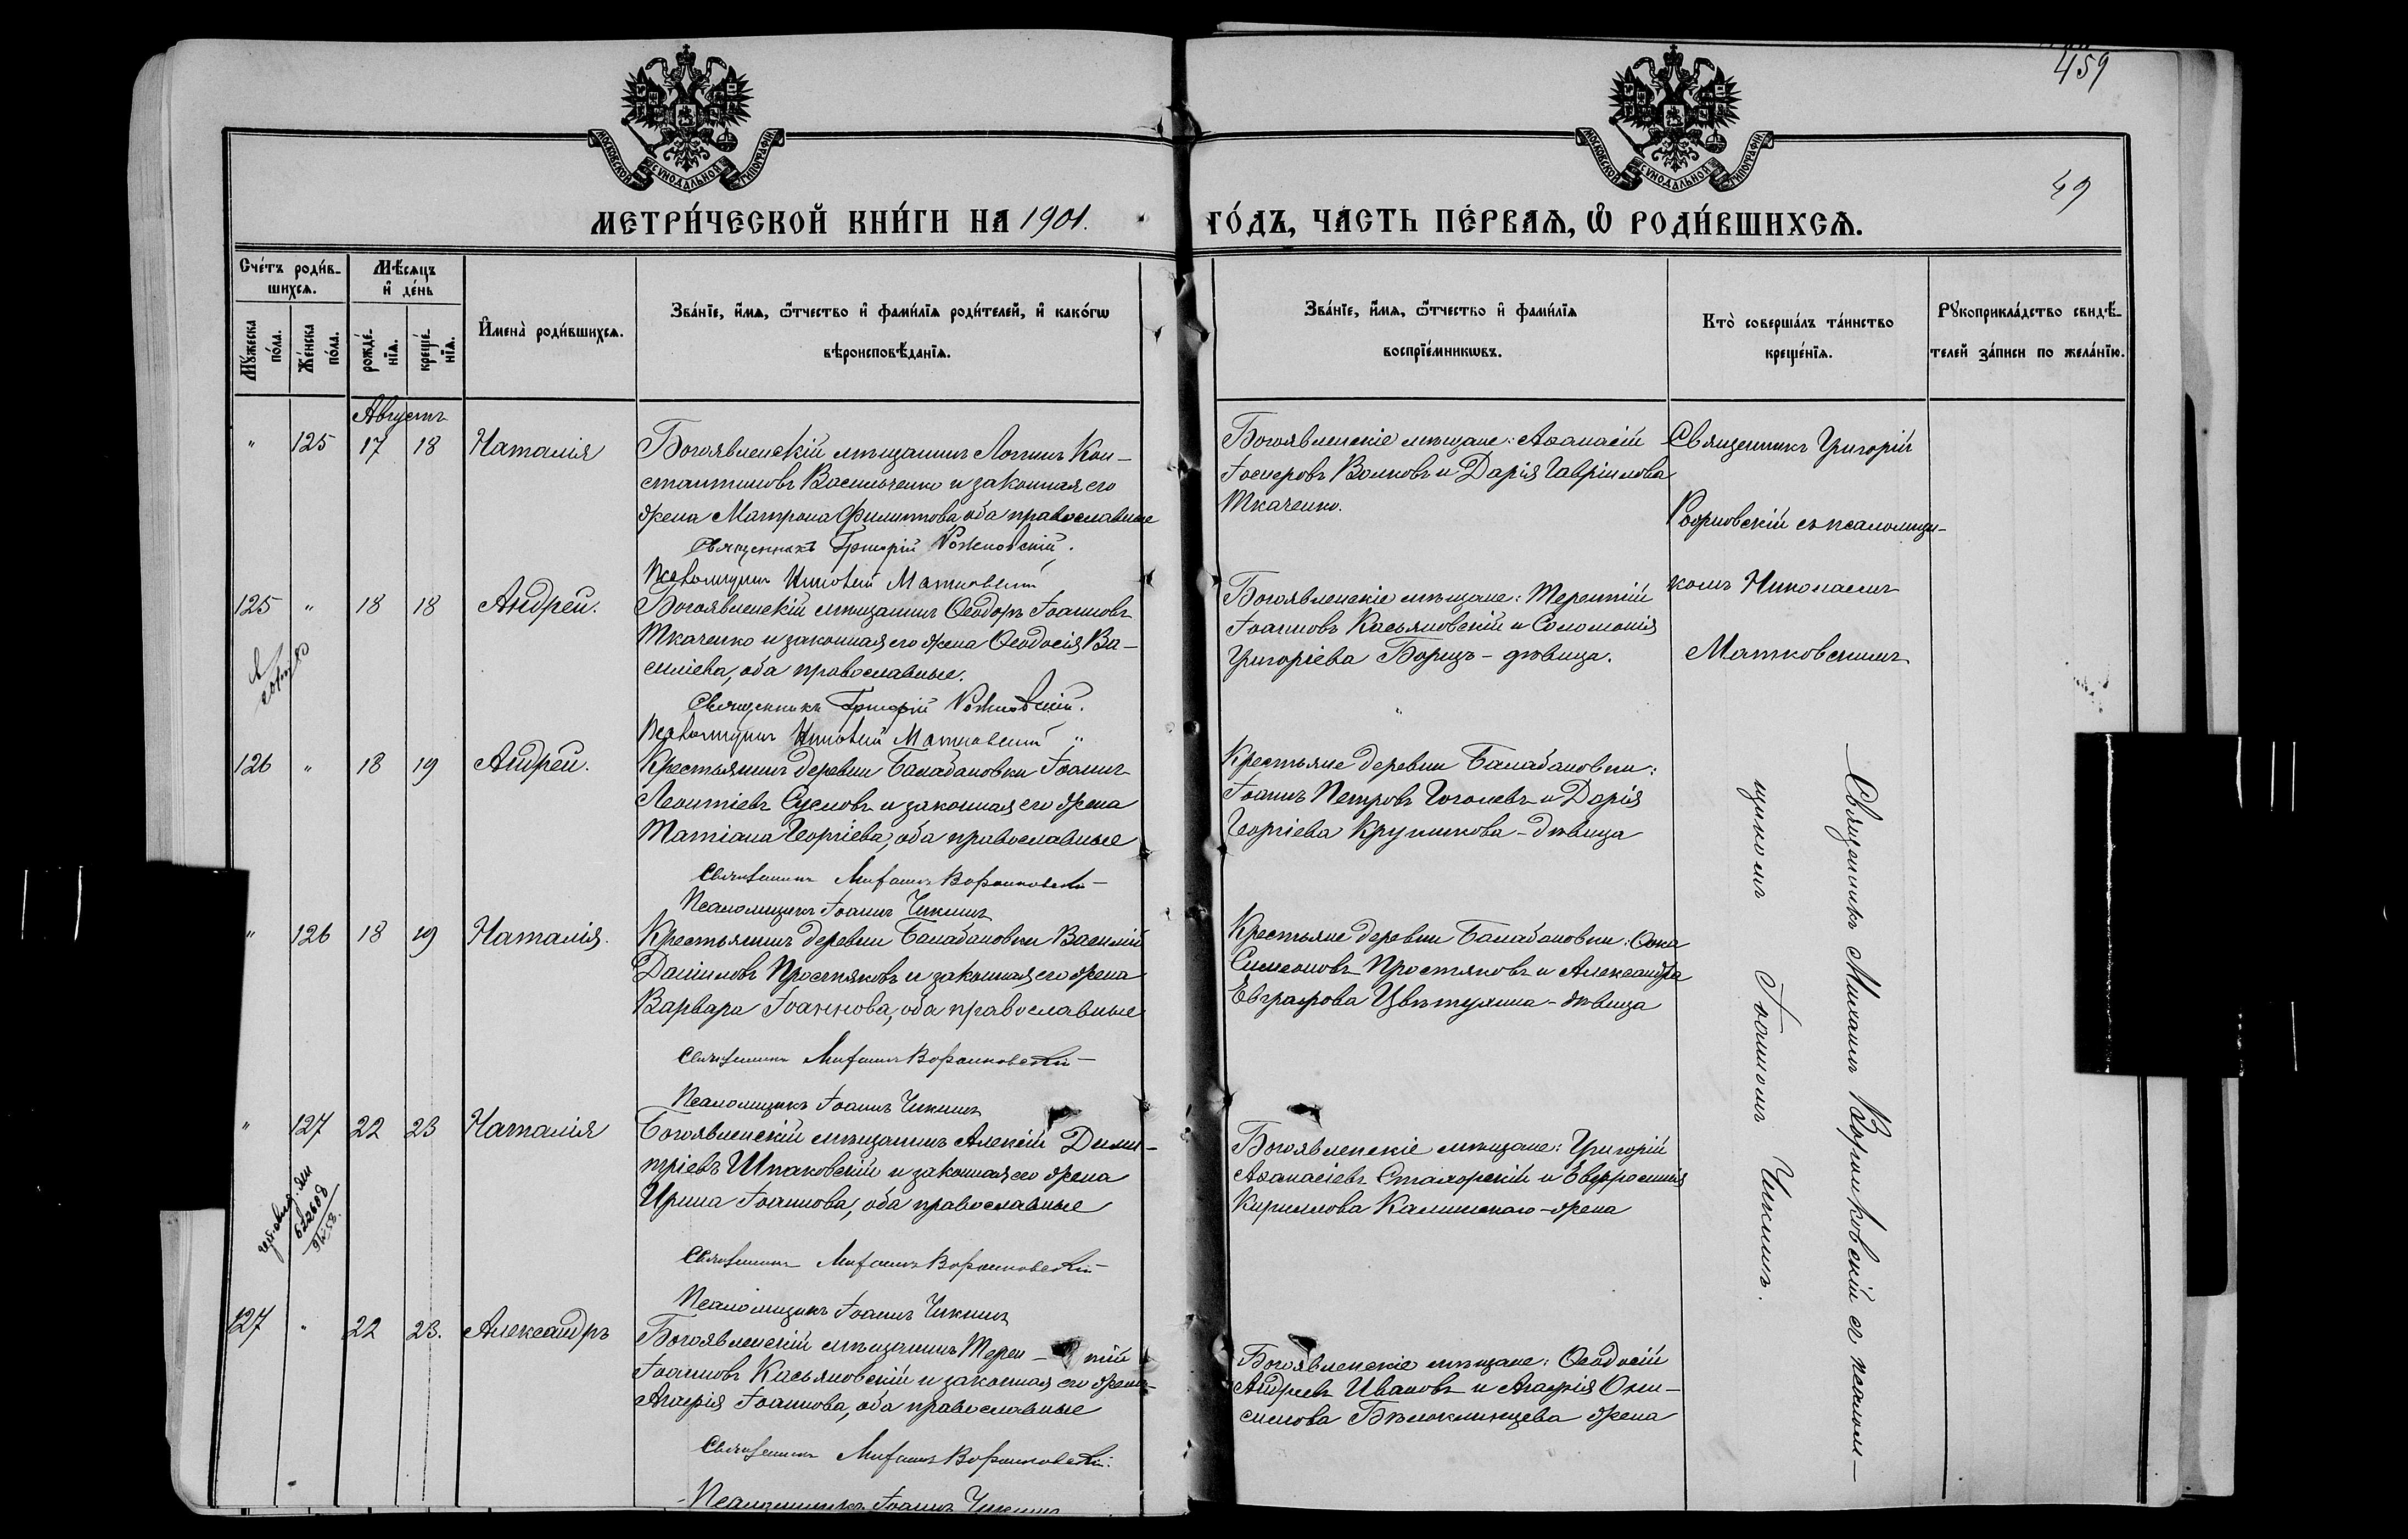 459
49
МОСКОВСКОЙ СѴНОДАЛЬНОЙ ТИПОГРАФІИ
МОСКОВСКОЙ СѴНОДАЛЬНОЙ ТИПОГРАФІИ
МЕТРИ́ЧЕСКОЙ КНИ́ГИ НА 1901.
ГО́ДЪ, ЧА́СТЬ ПЕ́РВАѦ, Ѡ҆ РОДИ́ВШИХСѦ.
Сче́тъ роди́в-
шихсѧ.
Мꙋ́жеска по́ла.
Же́нска по́ла.
Мѣ́сяцъ
и҆ де́нь
рожде́-
нїѧ.
креще́-
нїѧ.
И҆мена̀ роди́вшихсѧ.
Зва́нїе, и҆́мѧ, ѻ҆́тчество и҆ фами́лїѧ роди́телей, и҆ како́гѡ
вѣроисповѣ́данїѧ.
Зва́нїе, и҆́мѧ, ѻ҆́тчество и҆ фами́лїѧ
воспрїе́мникѡвъ.
Кто̀ соверша́лъ та́инство
креще́нїѧ.
Рꙋкоприкла́дство свидѣ́-
телей за́писи по жела́нїю.
Августъ
" 125 17 18 Наталія
Богоявленскій мѣщанинъ Логинъ Кон-
стантиновъ Васильченко и законная его
жена Матрона Филиппова, оба православные
Священникъ Григорій Рожновскій.
Псаломщикъ Николай Матковскій
Богоявленскіе мѣщане: Аѳанасій
Іосифовъ Волковъ и Дарія Гавріилова
Ткаченко.
Священникъ Григорій
Рожновскій съ псаломщи-
комъ Николаемъ
Матковскимъ
125 " 18 18 Андрей.
Богоявленскій мѣщанинъ Ѳеодоръ Іоанновъ
Ткаченко и законная его жена Ѳеодосія Ва-
силіева, оба православные.
Священникъ Григорій Рожновскій.
Псаломщикъ Николай Матковскій "
Богоявленскіе мѣщане: Терентій
Іоанновъ Касьяновскій и Соломонія
Григоріева Борищъ - дѣвица.
126 " 18 19 Андрей.
Крестьянинъ деревни Балабановки Іоаннъ
Леонтіевъ Сусловъ и законная его жена
Татіана Георгіева, оба православные
Священникъ Михаилъ Воронковскій
Псаломщикъ Іоаннъ Чикминъ
Крестьяне деревни Балабановки:
Іоаннъ Петровъ Гоголевъ и Дарія
Георгіева Крупникова - дѣвица
Священникъ Михаилъ Воронковскій съ псалом-
щикомъ Іоанномъ Чикминъ.
" 126 18 19 Наталія.
Крестьянинъ деревни Балабановки Василій
Даніиловъ Простяковъ и законная его жена
Варвара Іоаннова, оба православные
Священникъ Михаилъ Воронковскій
Псаломщикъ Іоаннъ Чикминъ
Крестьяне деревни Балабановки: Ѳома
Симеоновъ Простяковъ и Александра
Евграфова Цвѣтухина - дѣвица
" 127 22 23 Наталія
Богоявленскій мѣщанинъ Алексій Дими-
тріевъ Шпаковскій и законная его жена
Ирина Іоаннова, оба православные
Священникъ Михаилъ Воронковскій
Псаломщикъ Іоаннъ Чикминъ
Богоявленскіе мѣщане: Григорій
Аѳанасіевъ и Евфросинія
Кириллова Калинскаго - жена
127 " 22 23. Александръ
Богоявленскій мѣщанинъ Терен- тій
Іоанновъ Касьяновскій и законная его жена
Агафія Іоаннова, оба православные
Священникъ Михаилъ Воронковскій.
Псаломщикъ Іоаннъ Чикминъ
Богоявленскіе мѣщане: Ѳеодосій
Андреевъ Ивановъ и Агафія Они-
симова Бѣлоклинцева жена